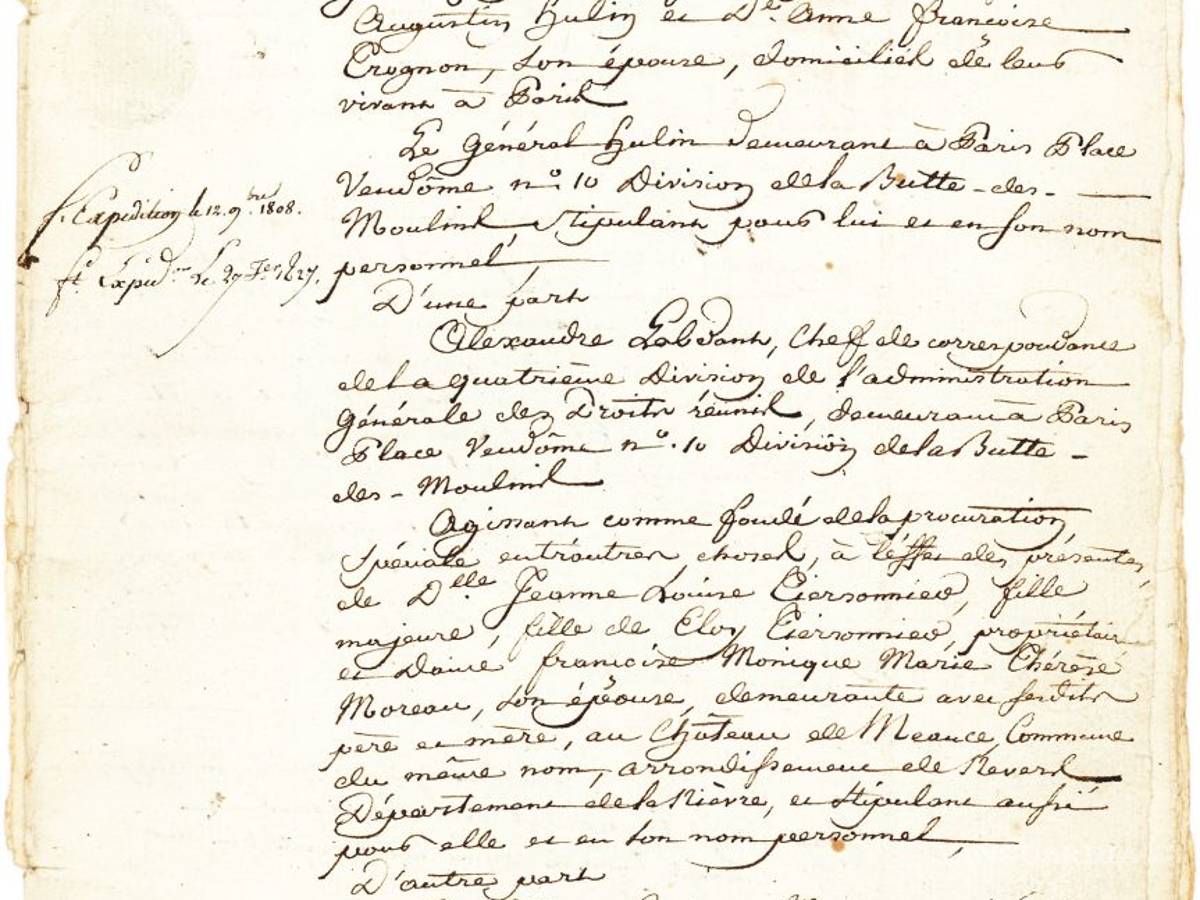 Augustin Hulin et De. Anne françoise
Crognon, son épouse, domiciliés de leur
vivant à Paris
Le Général Hulin demeurant à Paris Place
Vendôme no. 10 Division de la Butte-des-
Moulins, stipulant pour lui et en son nom
personnel,
f. Expédition le 12. 9bre 1808.
ft. Expédon Le 27 Jer. 1827.
D'une part
Alexandre Labdant, Chef de correspondance
de la quatrième Division de l'administration
Générale des Droits réunis, demeurant à Paris
Place Vendôme no. 10 Division de la Butte-
des-Moulins
Agissant comme fondé de la procuration
spéciale entr'autres choses, à l'effet des présentes,
de Dlle Jeanne Louise Tiersonnier, fille
majeure, fille de Eloy Tiersonnier, propriétaire
et Dame françoise Monique Marie Thérèse
Moreau, son épouse, demeurante avec sesdits
père et mère, au Château de Meauce, Commune
du même nom, arrondissement de Nevers
Département de la Nièvre, et stipulant aussi
pour elle et en son nom personnel,
D'autre part